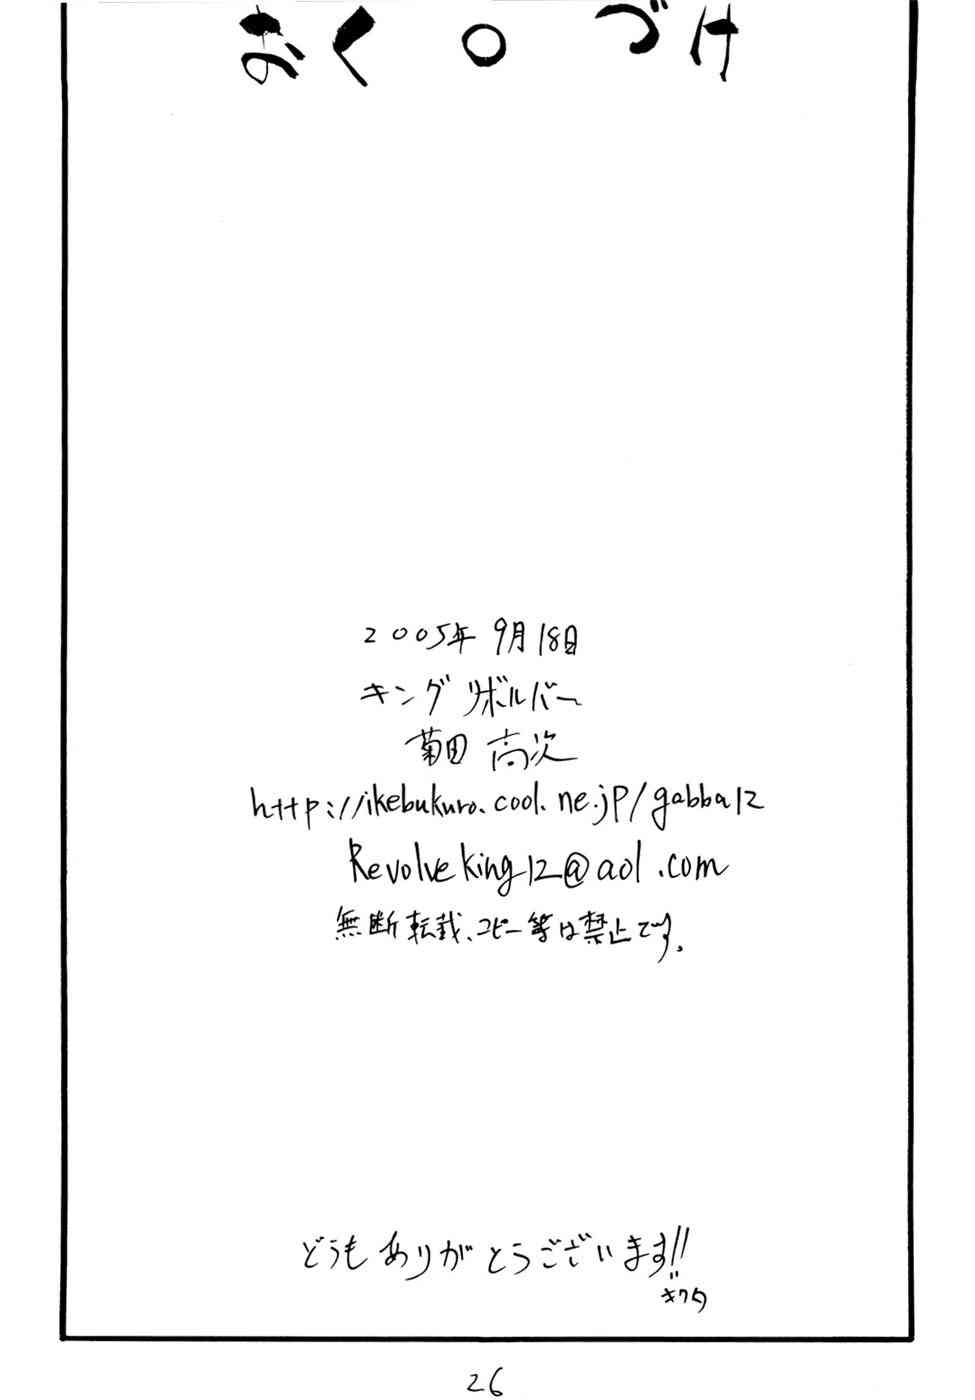 おく○づけ
2005年 9月18日
キング リボルバー
菊田 高次
http://ikebukuro.cool.ne.jp/gabba12
Revolveking12@aol.com
無断転載、コピー等は禁止です。
どうもありがとうございます!!
キクタ
26